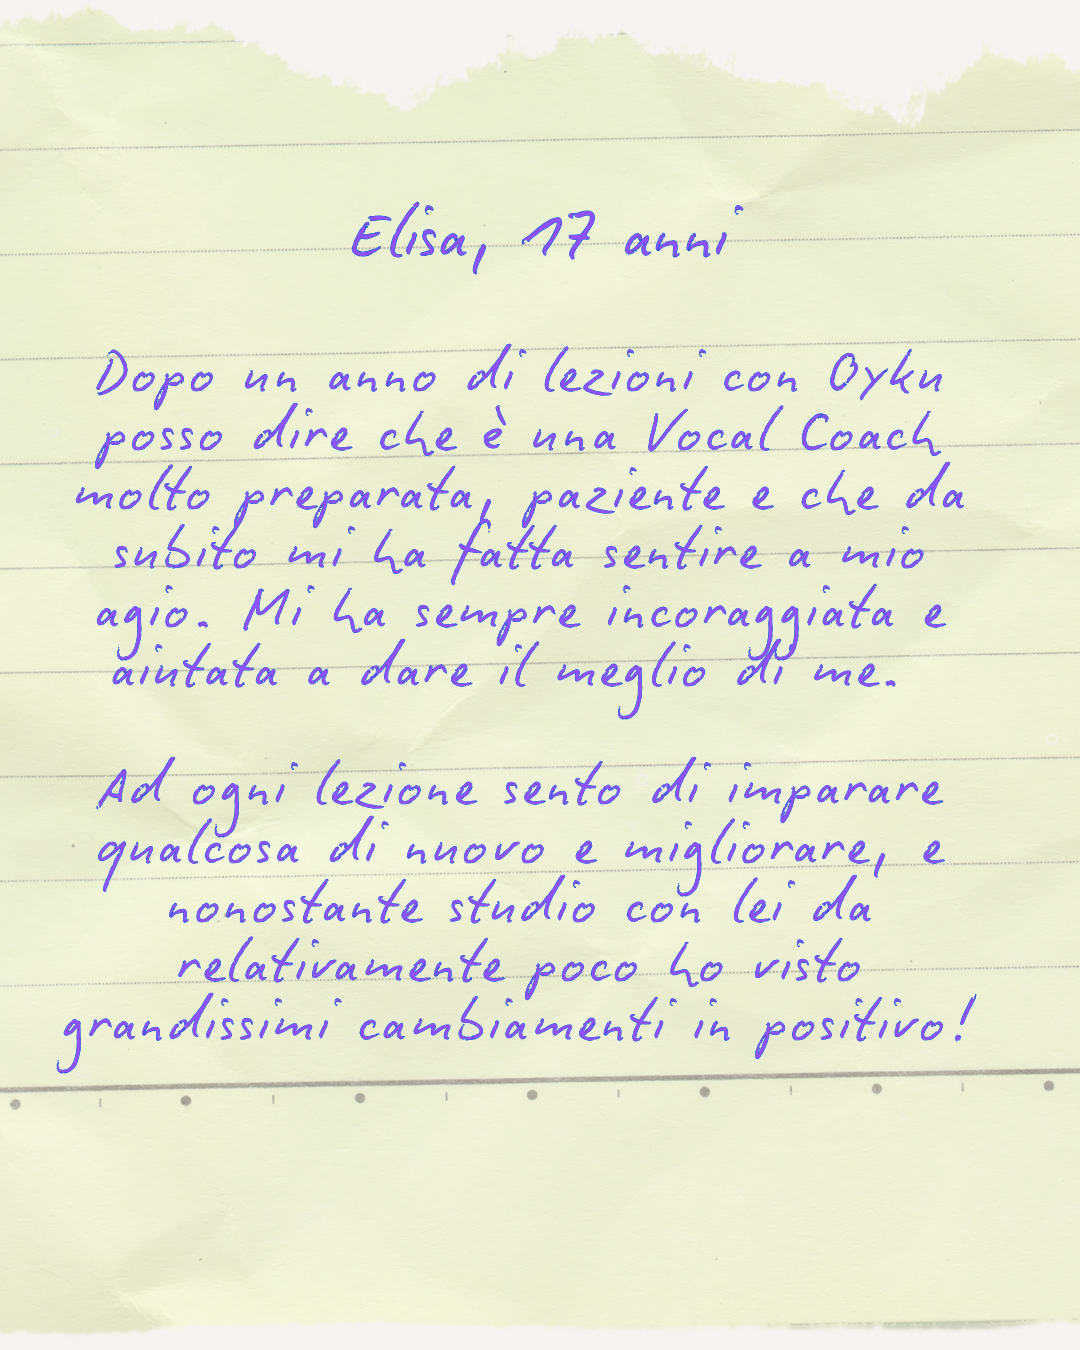 Elisa, 17 anni
Dopo un anno di lezioni con Oyku
posso dire che è una Vocal Coach
molto preparata, paziente e che da
subito mi ha fatta sentire a mio
agio. Mi ha sempre incoraggiata e
aiutata a dare il meglio di me.
Ad ogni lezione sento di imparare
qualcosa di nuovo e migliorare, e
nonostante studio con lei da
relativamente poco ho visto
grandissimi cambiamenti in positivo!